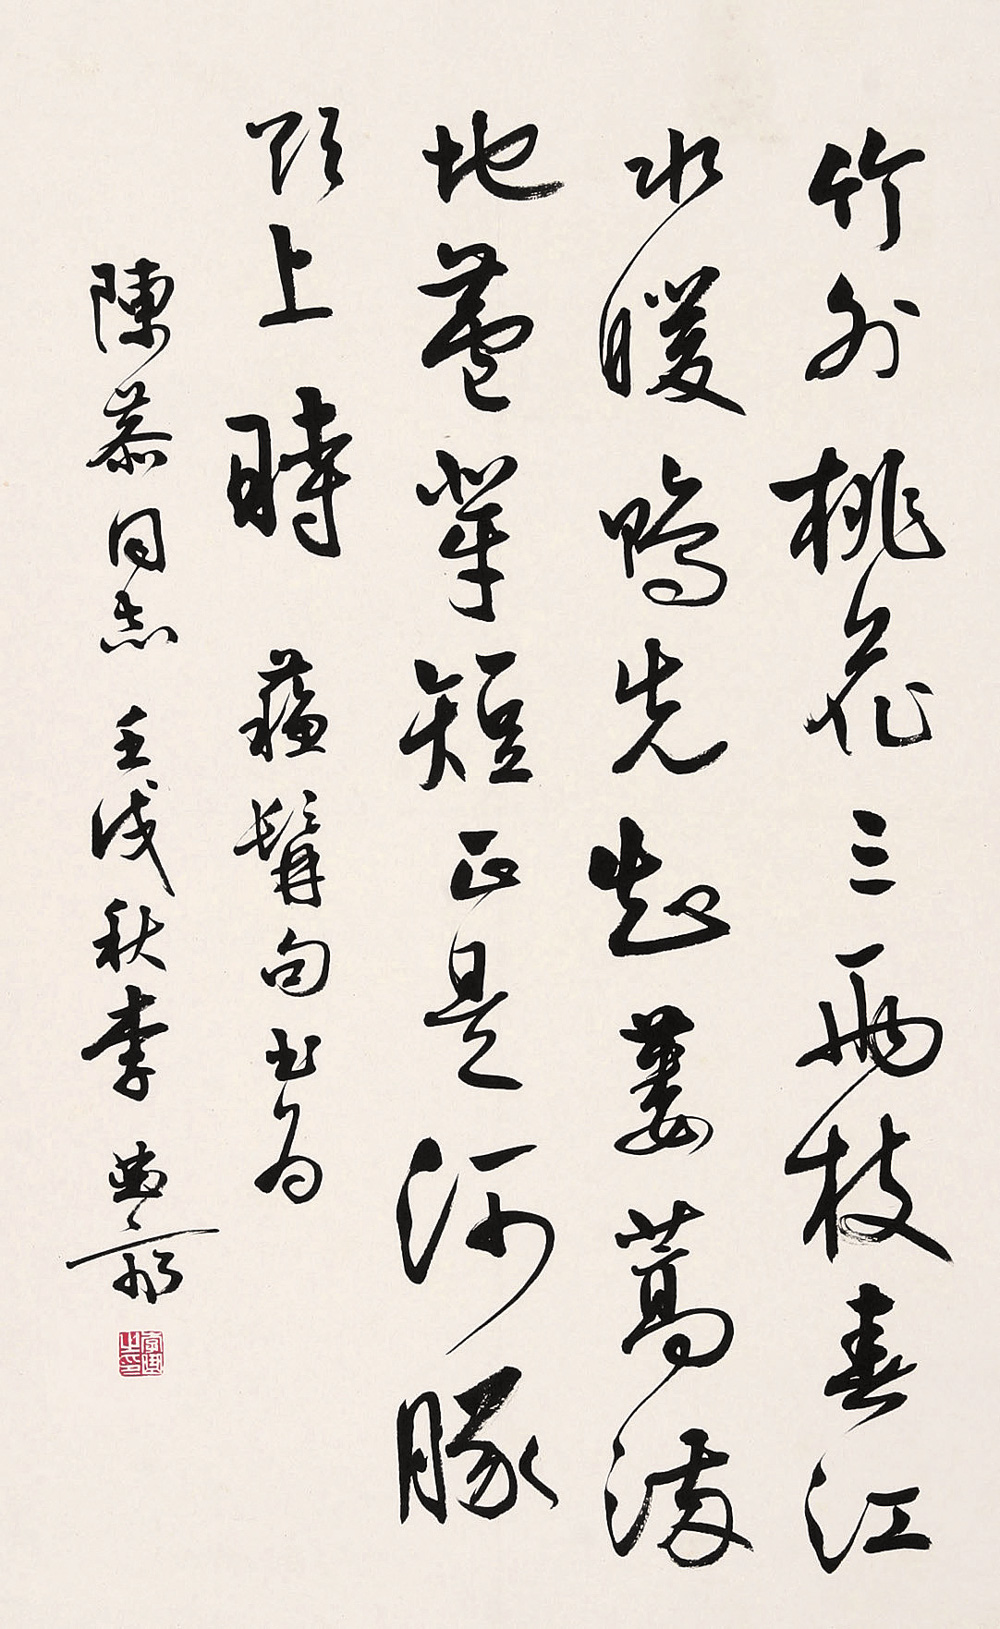 竹外桃花三兩枝春江
水暖鴨先知蔞蒿滿
地蘆芽短正是河豚
欲上時 蘇髯句書為
陳恭同志 壬戌秋李曲齋